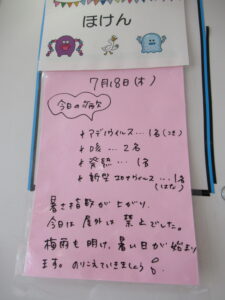 ほけん
7月18日(木)
今日の病欠
*アデノウイルス…1名(つき)
*咳…2名
*発熱…1名
*新型コロナウイルス…1名
(はな)
暑さ指数が上がり、
今日は屋外は禁止でした。
梅雨も明け、暑い日が始まり
ます。のりこえていきましょう